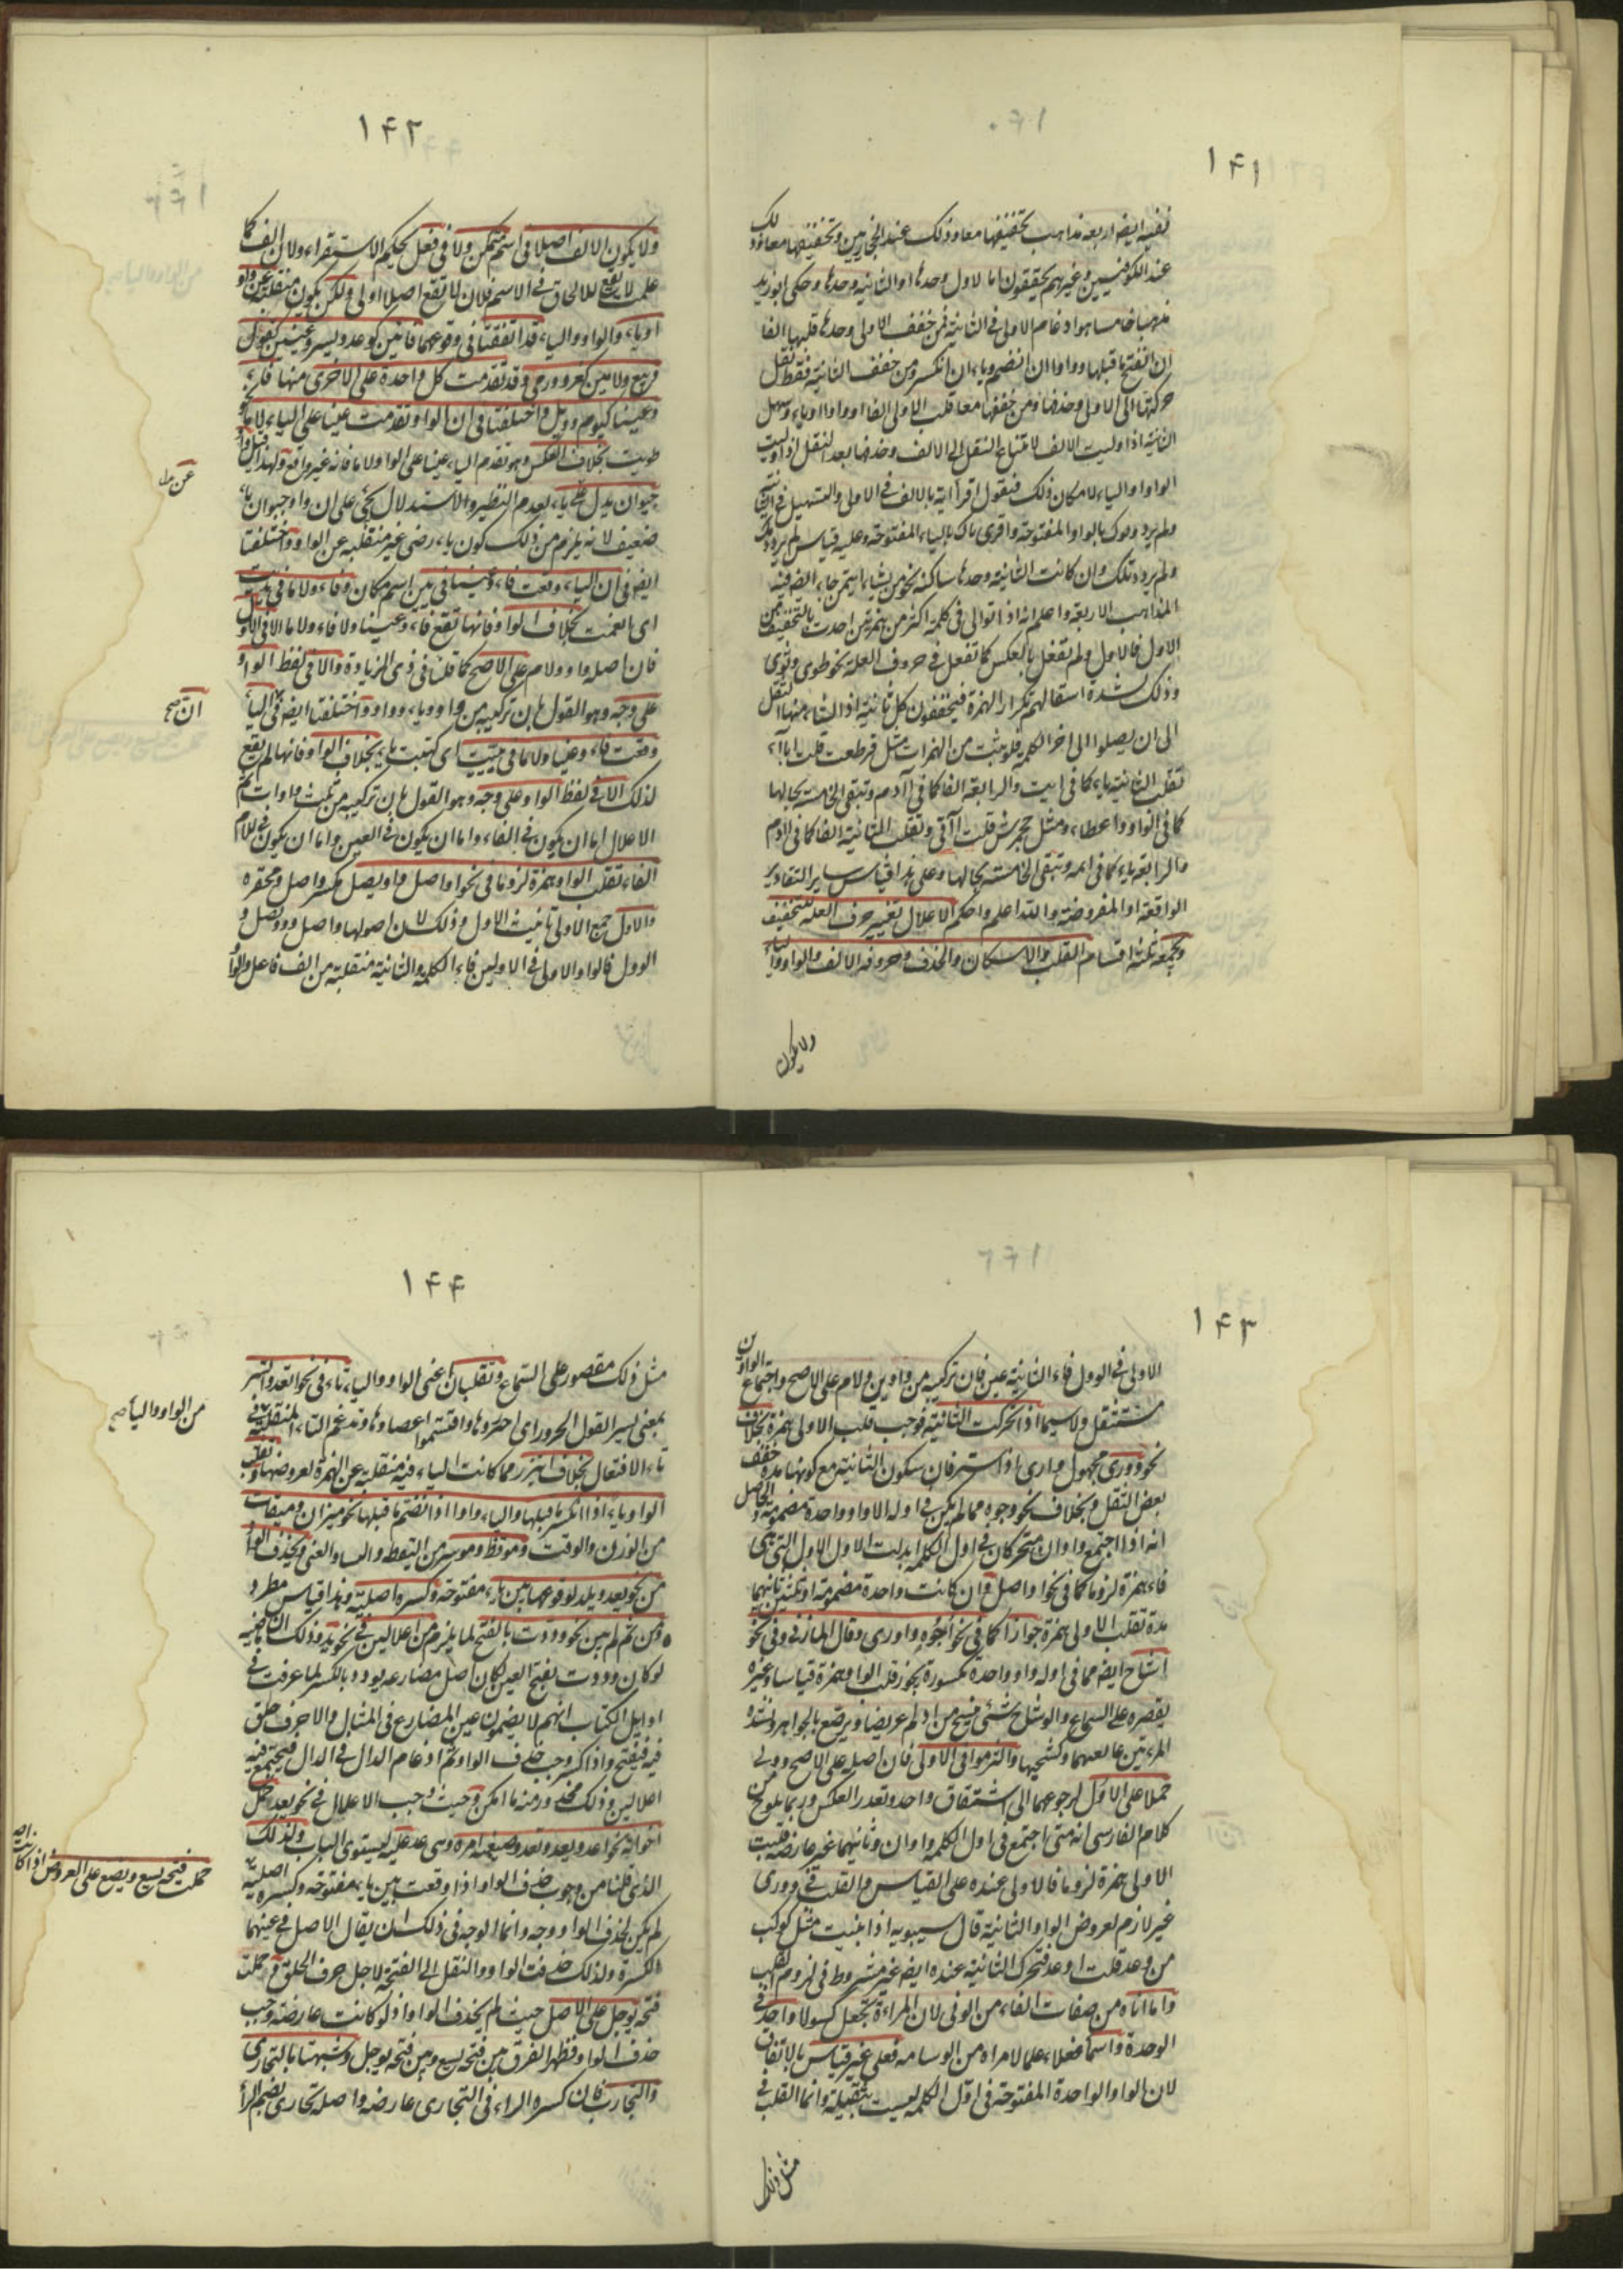 ١٤١
ففيه ايضا اربعة مذاهب تحقيقهما معا وذلك عند الحجازيين وتخفيفهما معا وذلك
عند الكوفيين وغيرهم يحققون اما الاولى وحدها او الثانية وحدها وحكى ابو زيد
مذهبا خامسا هو ادغام الاولى في الثانية فمن خفف الاولى وحدها قلبها الفا
ان انفتح ما قبلها وواوا ان انضم وياء ان انكسر ومن خفف الثانية فقط نقل
حركتها الى الاولى وحذفها ومن خففهما معا قلب الاولى الفا او واوا او ياء وسهل
الثانية اذا وليت الالف لامتناع النقل الى الالف وحذفها بعد النقل اذا وليت
الواو او الياء لامكان ذلك فيقول اقرأ اية بالالف في الاولى والتسهيل في الثانية
ولم يردووك بالواو المفتوحة واقرى باك بالياء المفتوحة وعليه قياس لم يردو
ولم يردو تلك وان كانت الثانية وحدها ساكنة نحو من يشاء ايتمن جاء ايضا فيه
المذاهب الاربعة واعلم انه اذا توالى في كلمة اكثر من همزتين اخذت بالتخفيف من
الاول فالاول ولم تفعل بالعكس كما تفعل في حروف العلة نحو طوى ونوى
وذلك لشدة استثقالهم تكرار الهمزة فيخففون كل ثانية اذا نشأ منها الثقل
الى ان يصلوا الى اخر الكلمة فلو بنيت من الهمزات مثل قرطعب قلت
تقلب الثانية ياء كما في ايت والرابعة الفا كما في اآدم وتبقى الخامسة بحالها
كما في الواو واعطاء ومثل جحمرش قلت وتقلب الثانية الفا كما في اادم
والرابعة ياء كما في ائمة وتبقى الخامسة بحالها وعلى هذا قياس ساير التقادير
الواقعة او المفروضة والله اعلم واحكم الاعلال تغيير حرف العلة للتخفيف
ويجمعه ثلثة اقسام القلب والاسكان والحذف وحروفه الالف والواو والياء
ولا يكون
١٤٢
ولا يكون الالف اصلا في اسم متمكن ولا في فعل بحكم الاستقراء ولان الالف كما
علمت لا يقع للالحاق في الاسم فلان لا تقع اصلا اولى ولكن يكون منقلبة عن واو
او ياء والواو والياء قد اتفقتا في وقوعهما فائين كوعد ويسر وعينين كقول
وبيع ولامين كغزو ورمى وقد تقدمت كل واحدة على الاخرى منها فاء
وعينا كيوم وويل واختلفتا في ان الواو تقدمت عينا على الياء لاما نحو
طويت بخلاف العكس وهو تقدم الياء عينا على الواو لاما فانه غير واقع ولهذا قيل واو
حيوان بدل عن ياء لعدم النظير والاستدلال بحي على ان واو حيوان ياء
ضعيف لانه يلزم من ذلك كون ياء رضى غير منقلبة عن الواو واختلفتا
ايضا في ان الياء وقعت فاء وعينا في يين اسم مكان وفاء ولاما في يديت
اى انعمت بخلاف الواو فانها تقع فاء وعينا ولا فاء ولاما الا في الاول
فان اصله واو ولام على الاصح كما قلنا في ذى الزيادة والا في لفظ الواو
على وجه وهو القول بان تركيبه من واو وياء وواو واختلفتا ايضا في الياء
وقعت فاء وعينا ولاما في يييت اى كتبت ياء بخلاف الواو فانها لم يقع
لذلك الا في لفظ الواو على وجه وهو القول بان تركيبه من ثلث واوات ثم
الاعلال اما ان يكون في الفاء واما ان يكون في العين واما ان يكون في اللام
الفاء تقلب الواو همزة لزوما في نحو اواصل واويصل مكسر واصل ومحقره
والاول جمع الاولى تانيث الاول وذلك لان اصولها وواصل وويصل و
الوول فالواو الاولى في الاولين فاء الكلمة والثانية منقلبة من الف فاعل والواو
عن
ان صح
١٤٣
الاولى في الوول فاء الثانية عين فان تركيبه من واوين ولام على الاصح واجتماع الواوين
مستثقل ولا سيما اذا تحركت الثانية فوجب قلب الاولى همزة بخلاف
نحو وورى مجهول وارى اذا ستر فان سكون الثانية مع كونها مدة خفف
بعض الثقل وبخلاف نحو وجوه مما لم يكن في اوله الا واو واحدة مضمومة والحاصل
انه اذا اجتمع واوان متحركان في اول الكلمة ابدلت الاولى التي هي
فاء همزة لزوما كما في نحو اواصل وان كانت واحدة مضمومة او ثنتين ثانيهما
مدة تقلب الاولى همزة جوازا كما في نحو اجوه واورى وقال المازني وفي نحو
اشاح ايضا مما في اوله واو واحدة مكسورة يجوز قلب الواو همزة قياسا وغيره
يقصره على السماع والوشاح شئ ينسج من اديم عريضا ويرصع بالجواهر وتشده
المرءة بين عاتقها وكشحيها والتزموا في الاولى فان اصله على الاصح وولى
حملا على الاول لرجوعهما الى اشتقاق واحد وتعذر العكس وربما يلوح من
كلام الفارسى انه متى اجتمع في اول الكلمة واوان وثانيهما غير عارضة قلبت
الاولى همزة لزوما فالاولى عنده على القياس والقلب في وورى
غير لازم لعروض الواو الثانية قال سيبويه اذا بنيت مثل كوكب
من وعد قلت اوعد فتحرك الثانية عنده ايضا غير مشروط في لزوم القلب
واما اناة من صفات النساء من الونى لان المراءة تجعل كسولا واحد في
الوحدة واسماء فعلاء علما لامراة من الوسامة فعلى غير قياس بالاتفاق
لان الواو الواحدة المفتوحة في اول الكلمة ليست بثقيلة وانما القلب في
مثل ذلك
١٤٤
مثل ذلك مقصور على السماع وتقلبان اعنى الواو والياء تاء في نحو اتعد واتسر
بمعنى يسر القول الجزور اى اجتزروها واقتسموا اعضاءها وتدغم التاء المنقلبة في
تاء الافتعال بخلاف ايتزر مما كانت الياء فيه منقلبة عن الهمزة لعروضها وتقلب
الواو ياء اذا انكسر ما قبلها والياء واوا اذا انضم ما قبلها نحو ميزان وميقات
من الوزن والوقت وموقظ وموسر من اليقظ واليسار والغنى وتحذف الواو
من نحو يعد ويلد لوقوعها بين ياء مفتوحة وكسرة اصلية وهذا قياس مطرد
ومن ثم لم يبن نحو وددت بالفتح لما يلزم من اعلالين في نحو يد وذلك ان ماضيه
لو كان وددت بفتح العين لكان اصل مضارعه يودد بالكسر لما عرفت في
اوايل الكتاب انهم لا يضمون عين المضارع في المثال والاجوف حلق
فيه فيفتح واذا كسر وجب حذف الواو ثم ادغام الدال في الدال فيجتمع فيه
اعلالين وذلك محذور منه ما امكن وحيث وجب الاعلال في نحو يعد حمل
اخواته نحو اعد ونعد وتعد وصيغة امره وهى عد عليه ليستوى الباب ولذلك
الذى قلنا من وجوب حذف الواو اذا وقعت بين ياء مفتوحة وكسرة اصلية
لم يكن لحذف الواو وجه وانما الوجه في ذلك ان يقال الاصل في عينهما
الكسرة ولذلك حذفت الواو والنقل الى الفتحة لاجل حرف الحلق وحملت
فتحة يوجل على الاصل حيث لم يحذف الواو اذ لو كانت عارضة وجب
حذف الواو فظهر الفرق بين فتحة يسع وبين فتحة يوجل وشبهتا بالتجارى
والتجارب فان كسرة الراء في التجارى عارضة واصله تجارى بضم الراء
من الواو والياء صح
حملت فتحة يسع ويضع على العروض اذا كانت